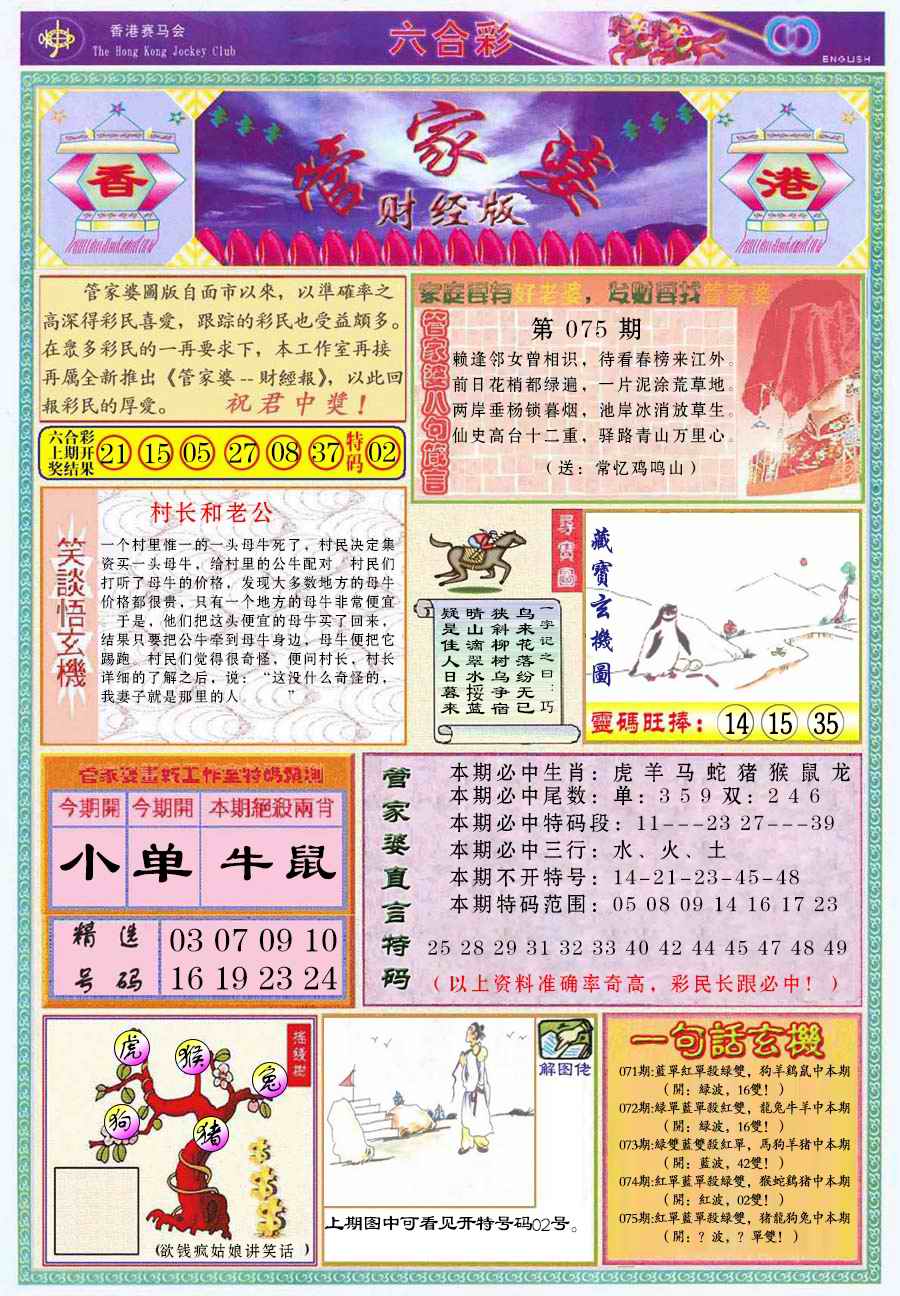 香港赛马会
The Hong Kong Jockey Club
六合彩
ENGLISH
香
管家婆
财经版
港
管家婆圖版自面市以來，以準確率之
高深得彩民喜愛，跟踪的彩民也受益頗多。
在衆多彩民的一再要求下，本工作室再接
再厲全新推出《管家婆--財經報》，以此回
報彩民的厚愛。 祝君中獎！
六合彩
上期开
奖结果
21 15 05 27 08 37 特码 02
家庭要有好老婆，发财要找管家婆
管家婆八句箴言
第 075 期
赖逢邻女曾相识，待看春榜来江外。
前日花梢都绿遍，一片泥涂荒草地。
两岸垂杨锁暮烟，池岸冰消放草生。
仙史高台十二重，驿路青山万里心。
（送：常忆鸡鸣山）
笑談悟玄機
村长和老公
一个村里惟一的一头母牛死了，村民决定集
资买一头母牛，给村里的公牛配对。村民们
打听了母牛的价格，发现大多数地方的母牛
价格都很贵，只有一个地方的母牛非常便宜
。于是，他们把这头便宜的母牛买了回来，
结果只要把公牛牵到母牛身边，母牛便把它
踢跑。村民们觉得很奇怪，便问村长，村长
详细的了解之后，说：“这没什么奇怪的，
我妻子就是那里的人。”
尋寶圖
一字记之曰：巧
鸟来花落纷无已
狭斜柳树乌争宿
晴山滴翠水挼蓝
疑是佳人日暮来
藏寶玄機圖
靈碼旺捧：14 15 35
今期開 今期開 本期絕殺兩肖
小 单 牛 鼠
精选
号码
03 07 09 10
16 19 23 24
管家婆直言特码
本期必中生肖：虎 羊 马 蛇 猪 猴 鼠 龙
本期必中尾数：单：3 5 9 双：2 4 6
本期必中特码段：11---23 27---39
本期必中三行：水、火、土
本期不开特号：14-21-23-45-48
本期特码范围：05 08 09 14 16 17 23
25 28 29 31 32 33 40 42 44 45 47 48 49
（以上资料准确率奇高，彩民长跟必中！）
摇錢樹
虎
猴
兔
狗
猪
（欲钱疯姑娘讲笑话 ）
解图佬
上期图中可看见开特号码02号。
一句話玄機
071期:藍單紅單殺綠雙，狗羊鷄鼠中本期
（開：緑波，16雙！）
072期:緑單藍單殺紅雙，龍兔牛羊中本期
（開：緑波，16雙！）
073期:緑雙藍雙殺紅單，馬狗羊猪中本期
（開：藍波，42雙！）
074期:紅單藍單殺緑雙，猴蛇鷄猪中本期
（開：紅波，02雙！）
075期:紅單藍單殺緑雙，猪龍狗兔中本期
（開：？波，？單雙！）